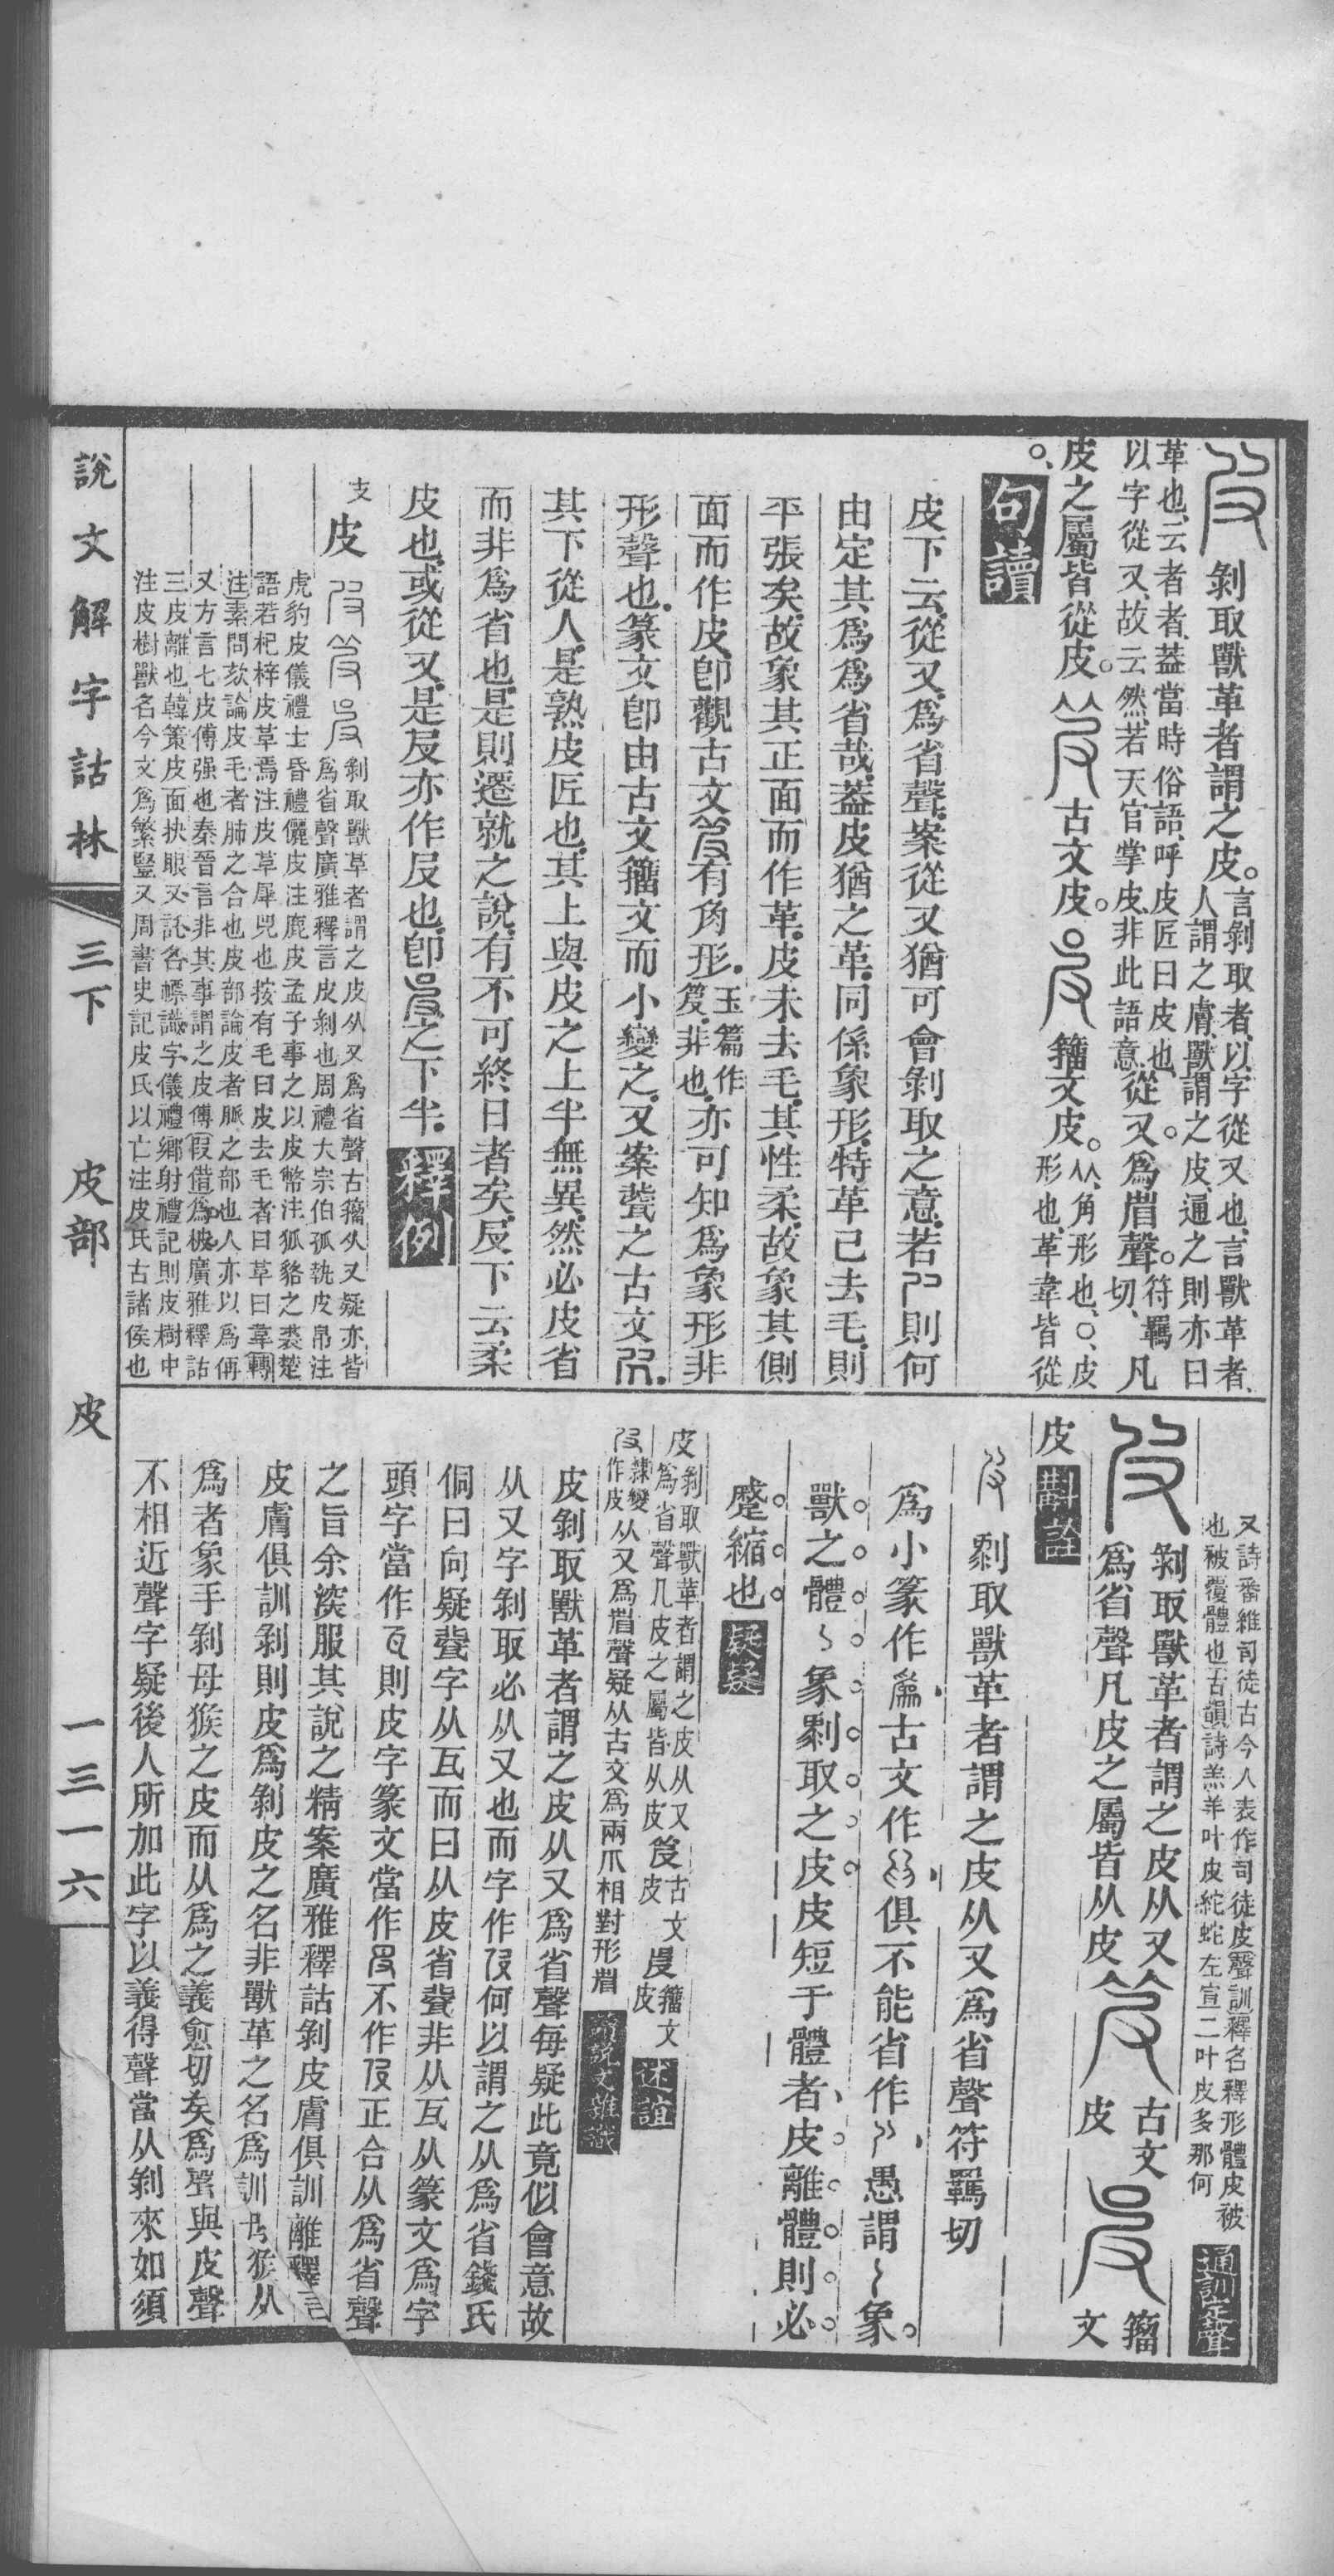 剝取獸革者謂之皮。言剝取者、以字從又也、言獸革者、
人謂之膚、獸謂之皮、通之則亦曰
革也、云者者、葢當時俗語、呼皮匠曰皮也、從又。爲省聲。符羈
以字從又、故云然、若天官掌皮、非此語意、切、凡
皮之屬皆從皮。古文皮。籒文皮。从、角形也、○、皮
形也、革韋皆從
○、句讀
皮下云、從又、爲省聲、案從又猶可會剝取之意、若則何
由定其爲爲省哉、葢皮猶之革、同係象形、特革已去毛、則
平張矣、故象其正面而作革、皮未去毛、其性柔、故象其側
面而作皮、卽觀古文有角形、玉篇作
䇯、非也、亦可知爲象形非
形聲也、篆文卽由古文籒文而小變之、又案㼱之古文、
其下從人、是熟皮匠也、其上與皮之上半無異、然必皮省
而非爲省也、是則遷就之說、有不可終日者矣、㞋下云柔
皮也、或從又、是㞋亦作㞋也、卽之下半、釋例
支
皮
剝取獸革者謂之皮从又爲省聲古籒从又疑亦皆
爲省聲廣雅釋言皮剝也周禮大宗伯孤執皮帛注
虎豹皮儀禮士昏禮儷皮注鹿皮孟子事之以皮幣注狐貉之裘楚
語若杞梓皮革焉注皮革犀兕也按有毛曰皮去毛者曰革曰韋轉
注素問欬論皮毛者肺之合也皮部論皮者脈之部也人亦以爲偁
又方言七皮傅强也秦晉言非其事謂之皮傅假借爲柀廣雅釋詁
三皮離也韓策皮面抉眼又託名幖識字儀禮鄉射禮記則皮樹中
注皮樹獸名今文爲繁豎又周書史記皮氏以亡注皮氏古諸侯也
又詩番維司徒古今人表作司徒皮聲訓釋名釋形體皮被
也被覆體也古韻詩羔羊叶皮紽蛇左宣二叶皮多那何
通訓定聲
剝取獸革者謂之皮从又
爲省聲凡皮之屬皆从皮
古文
皮
籒
文
皮 斠詮
剝取獸革者謂之皮从又爲省聲符羈切
爲小篆作古文作俱不能省作愚謂象
獸之體象剝取之皮皮短于體者皮離體則必
蹙縮也 疑疑
皮剝取獸革者謂之皮从又
爲省聲凡皮之屬皆从皮䇯古文
皮籒文
皮 述誼
隸變
作皮从又爲省聲疑从古文爲兩爪相對形省 讀說文雜識
皮剝取獸革者謂之皮从又爲省聲每疑此竟似會意故
从又字剝取必从又也而字作何以謂之从爲省錢氏
侗曰向疑㼱字从瓦而曰从皮省㼱非从瓦从篆文爲字
頭字當作則皮字篆文當作不作正合从爲省聲
之旨余深服其說之精案廣雅釋詁剝皮膚俱訓離釋言
皮膚俱訓剝則皮爲剝皮之名非獸革之名爲訓母猴从
爲者象手剝母猴之皮而从爲之義愈切矣爲聲與皮聲
不相近聲字疑後人所加此字以義得聲當从剝來如須
說文解字詁林 三下 皮部 皮 一三一六